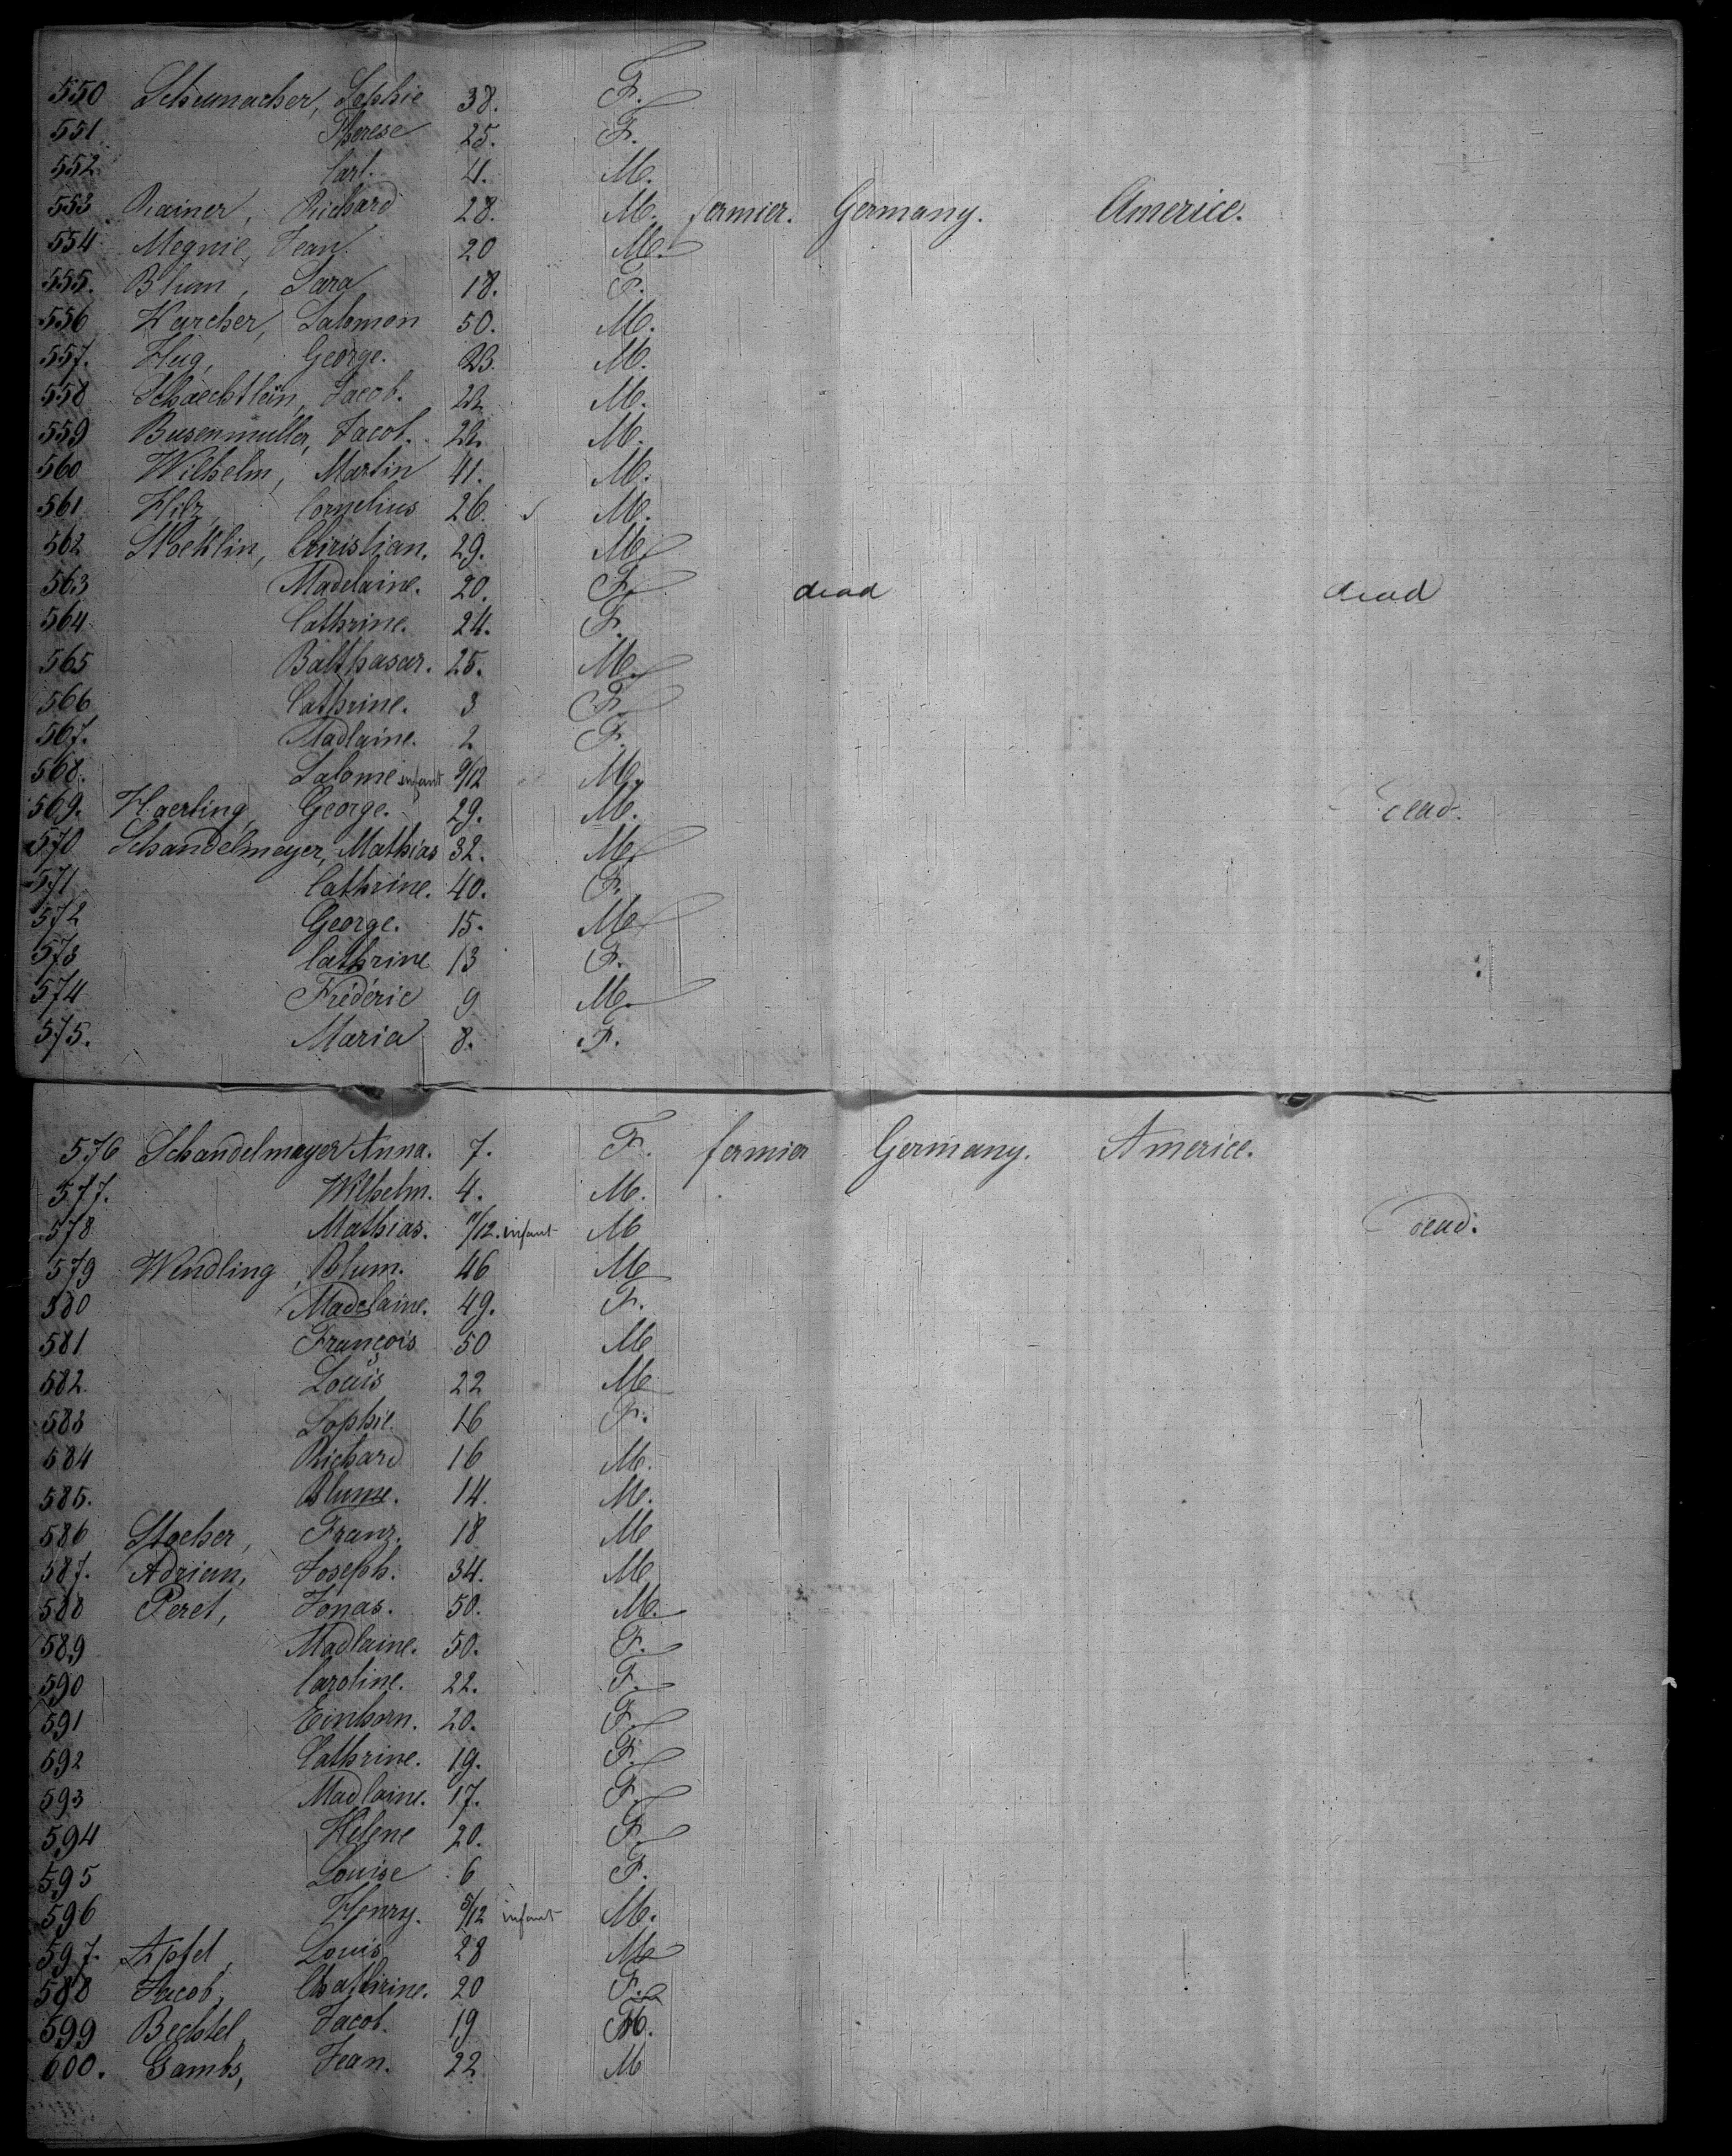 550 Schumacher, Sophie 38. F.
551. Therese 25. F.
552 Carl. 4. M.
553 Rainer, Richard 28. M. fermier. Germany. Americe.
554 Megnie, Jean 20 M.
555. Blum, Sara 18. F.
556 Harcher, Salomon 50. M.
557. Hug, George. 23. M.
558 Schaechtlein, Jacob. 22 M.
559 Busenmuller, Jacob. 22. M.
560 Wilhelm, Martin 41. M.
561 Hilz Cornelius 26. M.
562 Stoeklin, Christian. 29. M.
563 Madelaine. 20. F. dead dead
564 Cathrine. 24. F.
565 Balthasar. 25. M.
566 Cathrine. 3 F.
567. Madlaine. 2 F.
568. Salome infant 9/12 M.
569. Haerling, George. 29. M. dead.
570 Schandelmeyer, Mathias 32. M.
571 Cathrine. 40. F.
572 George. 15. M
573 Cathrine 13 F.
574 Fréderic 9 M.
575. Maria 8. F.
576 Schandelmayer Anna. 7. F. fermier Germany. Americe.
577. Wilhelm. 4. M.
578 Mathias. 11/12. infant M dead.
579 Wendling, Blum. 46 M
580 Madelaine. 49. F.
581 François 50 M
582. Louis 22 M
583 Sophie. 16 F.
584 Richard 16 M.
585. Blume. 14. M.
586 Stocher, Franz. 18 M
587. Adrian, Joseph. 34. M
588 Peret, Jonas. 50. M.
589 Madlaine. 50. F.
590 Caroline. 22. F.
591 Einhorn. 20. F.
592 Cathrine. 19. F.
593 Madlaine. 17. F.
594 Helene 20. F.
595 Louise 6 F.
596 Henry. 5/12 infant M.
597. Apfel, Louis 28 M
588 Jacob, Chathrine. 20 F.
599 Bechtel, Jacob. 19 M.
600. Gambs, Jean. 22 M